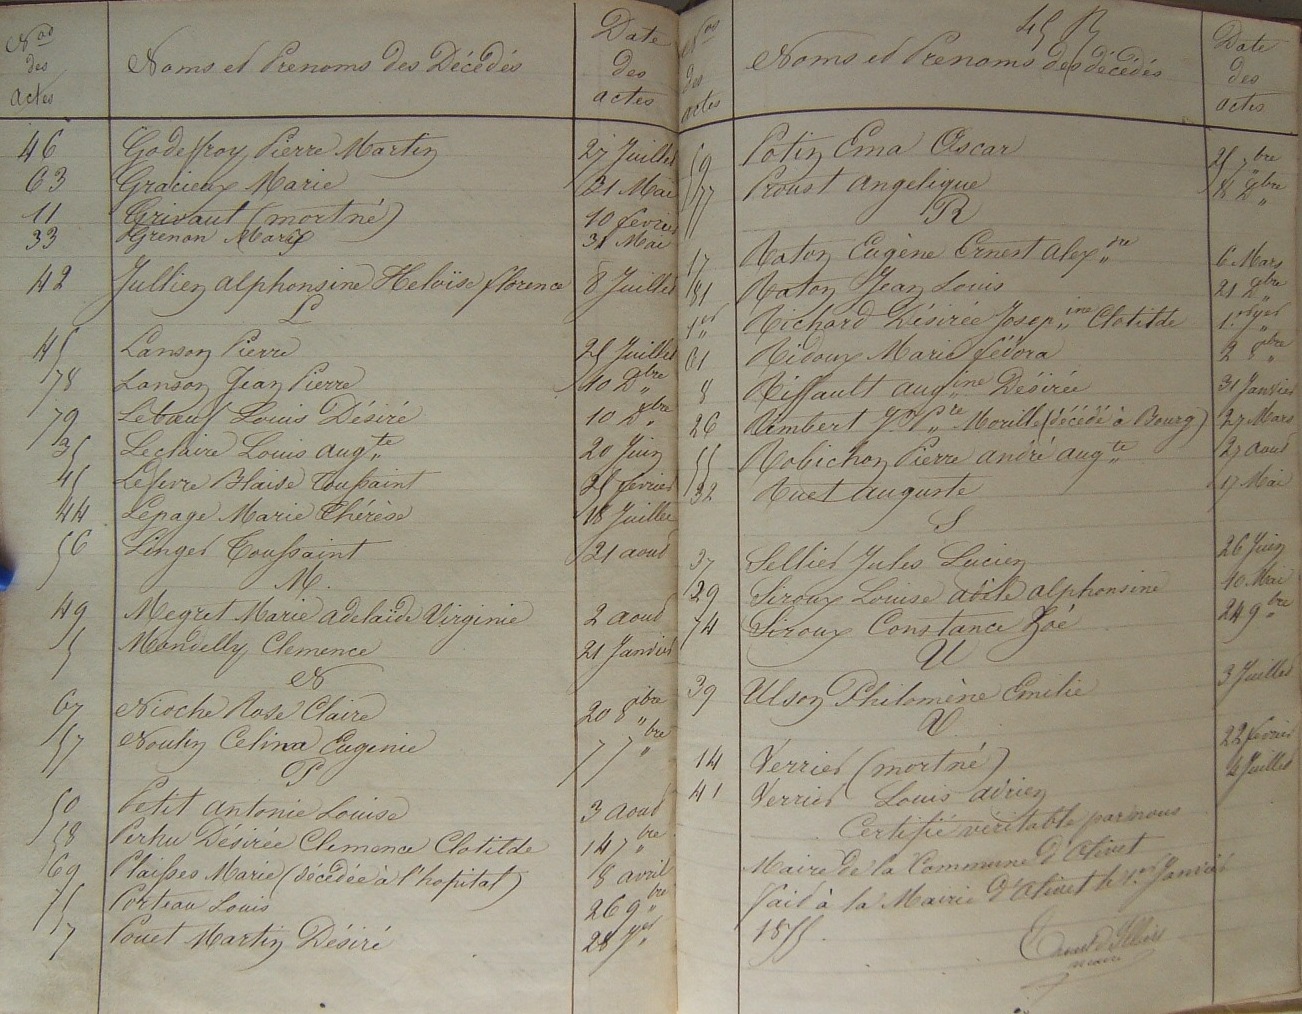 Nos des actes
Noms et Prenoms des Décédés
Date des actes
46 Godeffroy Pierre Martin 27 Juillet
63 Gracieux Marie 21 Mai
11 Grivaut (mort né) 10 fevrier
33 Grenon Marie 31 Mai
42 Jullien alphonsine Heloïse florence 8 Juillet
L
45 Lanson Pierre 25 Juillet
78 Lanson Jean Pierre 10 Xbre
79 Lebœuf Louis Desiré 10 Xbre
35 Leclaire Louis augte 20 Juin
45 Lefevre Blaise Toussaint 25 fevrier
44 Lepage Marie Thérèse 18 Juillet
56 Linget Toussaint 21 aout
M.
49 Megret Marie adelaïde Virginie 2 aout
5 Mondelly Clemence 21 Janvier
N
67 Nioche Rose Claire 20 8bre
57 Noulin Celina Eugenie 7 7bre
P
50 Petit antonie Louise 3 aout
58 Désirée Clemence Clotilde 14 7bre
69 Plaisses Marie (décédée à l'hopital) 8 avril
75 Porteau Louis 26 9bre
7 Pouet Martin Désiré 28 Jer
45 R
Nos des actes
Noms et Prenoms des décédés
Date des actes
59 Potin Ema Oscar 25 7bre
77 Proust angelique 8 Xbre
R
17 Raton Eugène Ernest alexdre 6 Mars
81 Raton Jean Louis 21 Xbre
1er Richard Désirée Josepine Clotilde 1er Jer
61 Ridoux Marie fédora 2 8bre
8 Riffault augine Désirée 31 Janvier
26 Rimbert Jn Pre Morille (décédé à Bourg) 27 Mars
55 Robichon Pierre andré augte 27 aout
32 Ruet auguste 17 Mai
S
37 Sellier Jules Lucien 26 Juin
29 Siroux Louise adèle alphonsine 10 Mai
74 Siroux Constance Zoé 24 9bre
U
39 Ulson Philomène Emilie 3 Juillet
V
14 Verrier (mort né) 22 fevrier
41 Verrier Louis adrien 4 Juillet
Certifié veritable par nous
Maire de la Commune d'Olivet
fait à la Mairie d'Olivet le 1er Janvier
1855.
maire